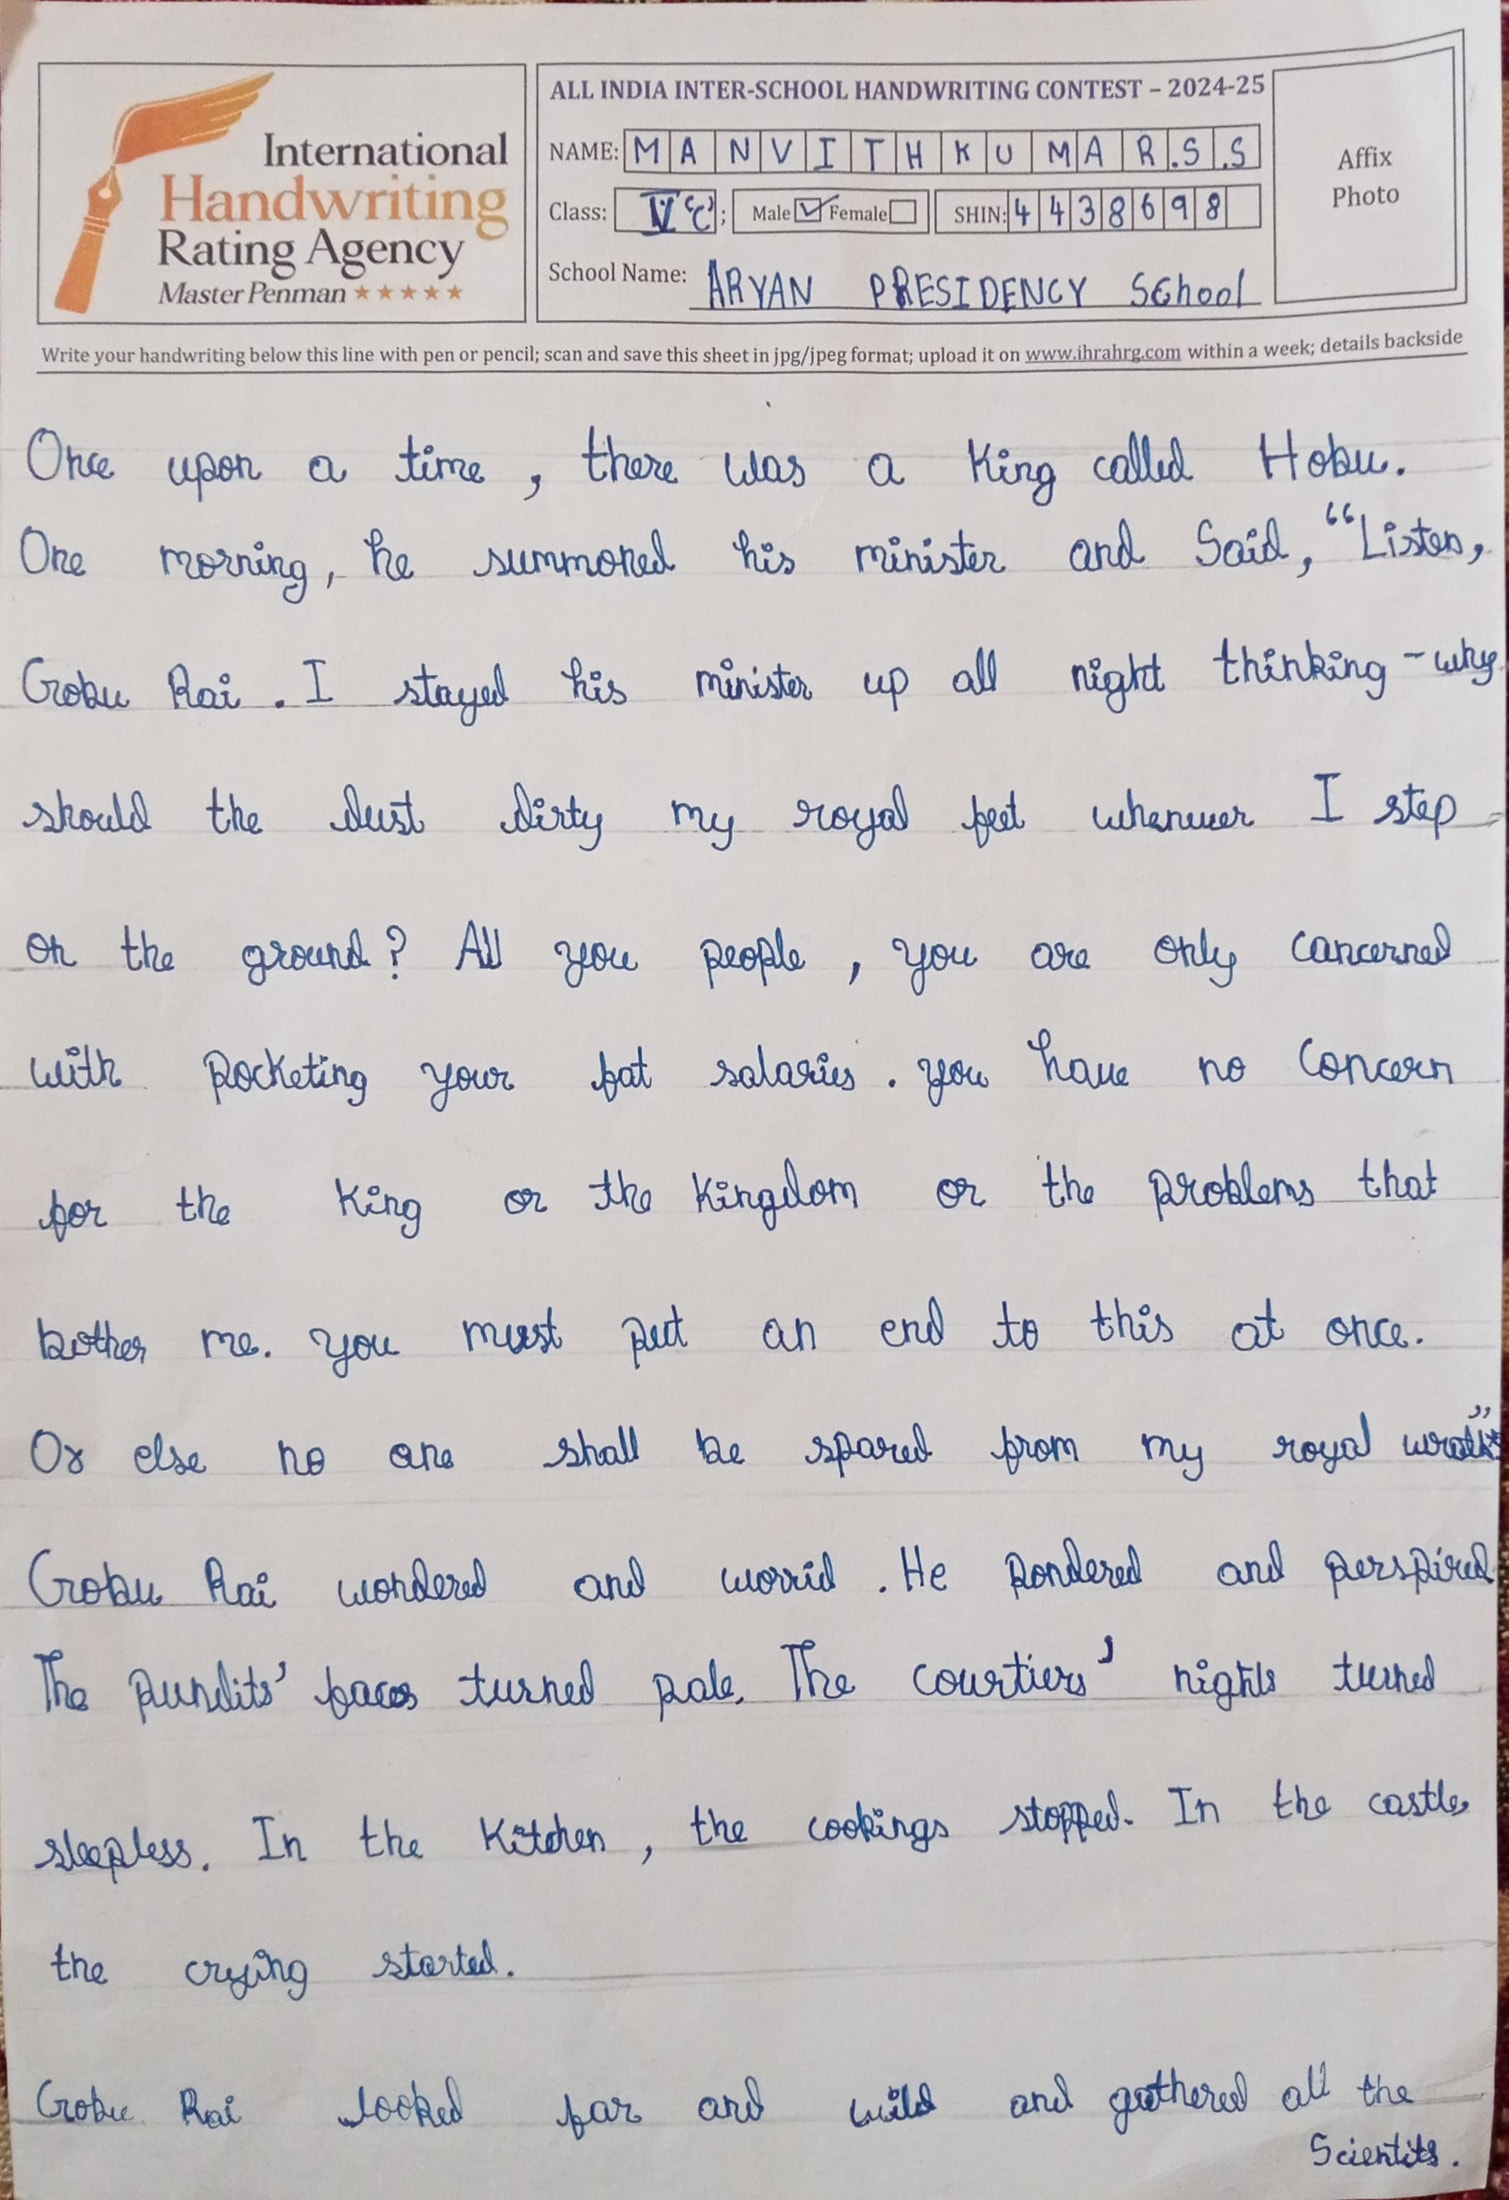 International
Handwriting
Rating Agency
Master Penman
ALL INDIA INTER-SCHOOL HANDWRITING CONTEST – 2024-25
NAME: MANVITHKUMAR.S.S
Class: V 'C'; Male Female SHIN: 4438698
School Name: ARYAN PRESIDENCY SChool
Affix
Photo
Write your handwriting below this line with pen or pencil; scan and save this sheet in jpg/jpeg format; upload it on www.ihrahrg.com within a week; details backside
Once upon a time , there was a King called Hobu.
One morning, he summoned his minister and Said, “Listen,
Gobu Rai . I stayed his minister up all night thinking - why
should the dust dirty my royal feet whenever I step
on the ground? All you people , you are only cancerned
with Pocketing your fat salaries . you have no Concern
for the King or the Kingdom or the problems that
bother me. you must put an end to this at once.
Or else no one shall be spared from my royal wrath”
Gobu Rai wondered and worrid . He pondered and perspired
The pundits’ faces turned pale. The courtiers’ nights turned
sleepless. In the Kitchen , the cookings stopped. In the castle,
the crying started.
Gobu Rai looked far and wild and gathered all the
Scientits.